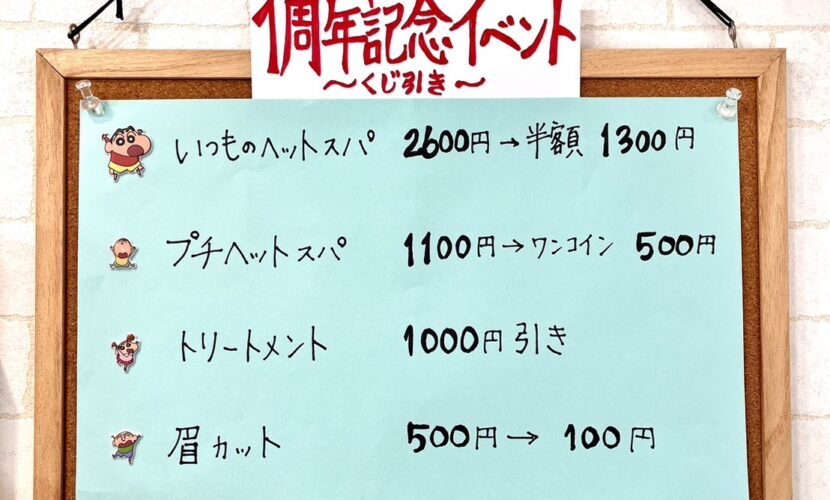 1周年記念イベント
～くじ引き～
いつものヘットスパ 2600円→半額 1300円
プチヘットスパ 1100円→ワンコイン 500円
トリートメント 1000円引き
眉カット 500円→100円